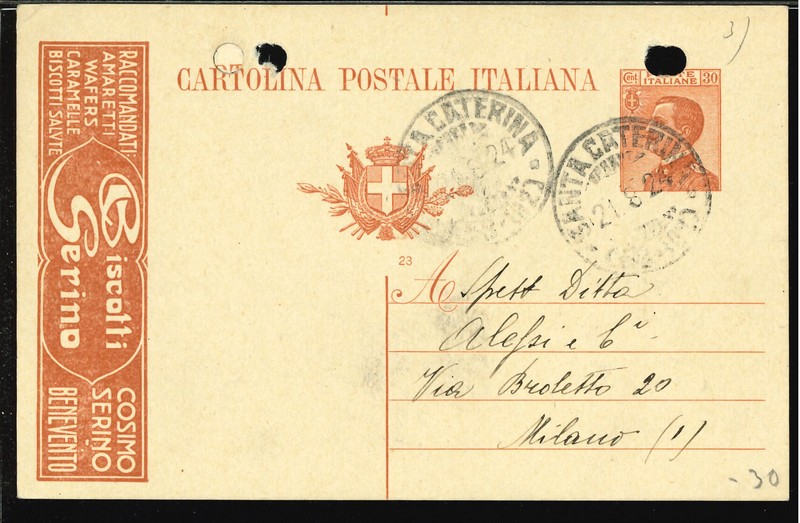 3)
CARTOLINA POSTALE ITALIANA
Cent. 30
POSTE
ITALIANE
RACCOMANDATI:
AMARETTI
WAFERS
CARAMELLE
BISCOTTI SALUTE
Biscotti
Serino
COSIMO
SERINO
BENEVENTO
SANTA CATERINA
24
SANTA CATERINA
21.6.24
23
A Spett Ditta
Alessi e Ci
Via Broletto 20
Milano (1)
-30